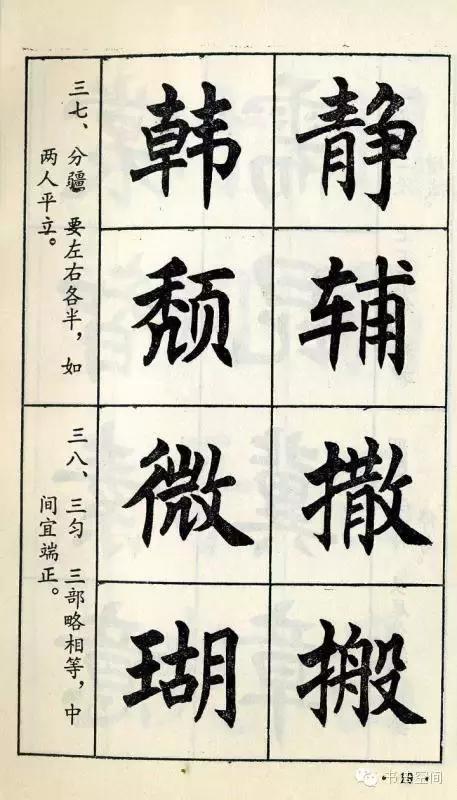 三七、分疆 要左右各半，如
两人平立。
韩 静
颓 辅
三八、三匀 三部略相等，中
间宜端正。
微 撒
瑚 搬
·19·
书法空间